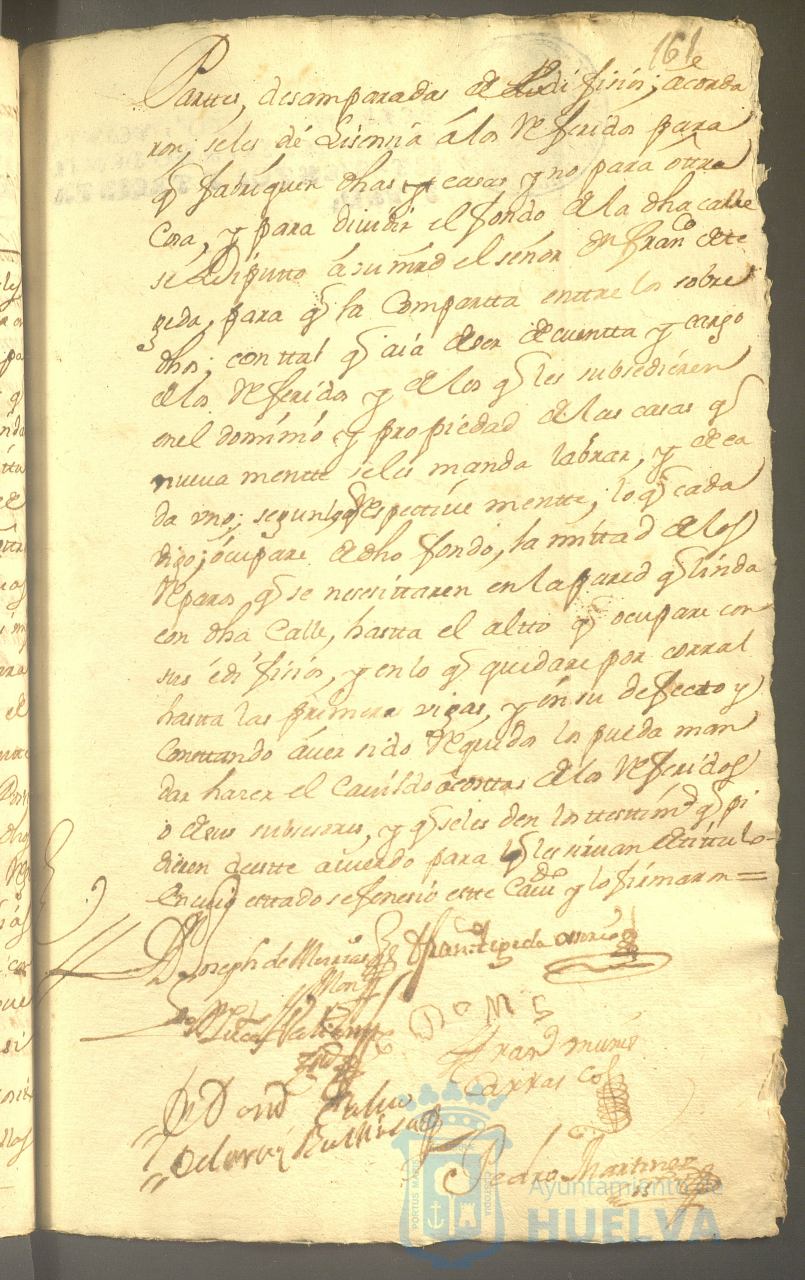 161
Partes, desamparadas de edifisio; acorda
ron; seles dé Lisensia álos Referidos para
q̃ fabriquen dhas casas y no para óttra
Cosa, y para diuidir el fondo de la dha calle
se Diputto á su mrd el señor Dn Franco de te
peda, para q̃ la Compartta enttre los sobre
dhos; con ttal q̃ aia deser de cuentta y cargo
de los Referidos y de los q̃ les subsedieren
enel dominio y propiedad de las casas q̃
nueua mentte seles manda labrar, y de ca
da vno; segun respectiue mentte, lo q̃ cada
digo; ócupare de dho fondo, la mittad de los
Reparos q̃ se nesesittaren en la pared q̃ linda
con dha Calle, hasta el altto q̃ ocupare con
sus édifisios, y en lo q̃ quedare por corral
hasta las primera vigas, y en su defecto y
Consttando áuer sido Requidos los pueda man
dar hazer el Cauildo a costtas de los Referidos
o de sus subsesores, y q̃ seles den los testtims q̃ pi
dieren de estte acuerdo para q̃ les siruan de titulo
En cuio estado se fenesió estte Cauo y lo firmaron =
D Joseph de
Fran tepeda osorio
Lucas
Franco munis
Carrasco
Pedro Martinez
PORTUS MARIS
Ayuntamiento de
HUELVA